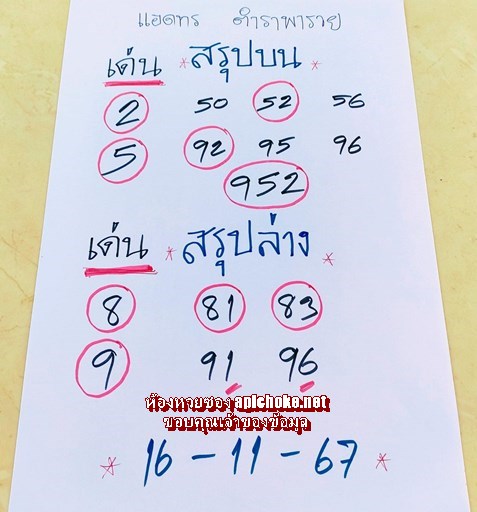 แอดทร ตำราพาราย
เด่น * สรุปบน *
2 50 52 56
5 92 95 96
952
เด่น * สรุปล่าง *
8 81 83
9 91 96
ห้องหวยซอง apichoke.net
ขอบคุณเจ้าของข้อมูล
* 16 - 11 - 67 *